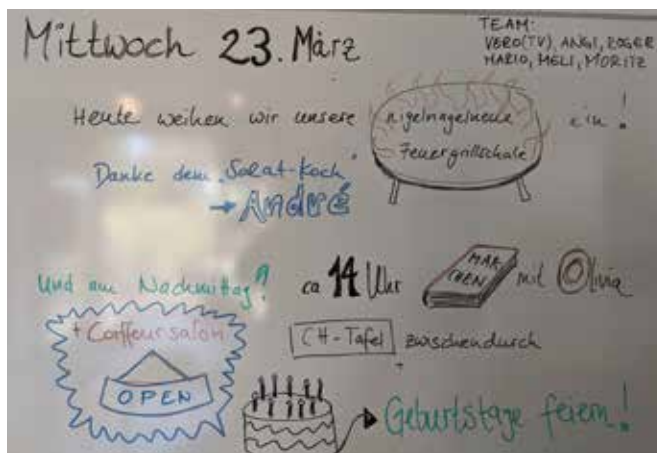 Mittwoch 23. März
TEAM:
VERO(TV), ANGI, ROGER
MARIO, MELI, MORITZ
Heute weihen wir unsere nigelnagelneue ein!
Feuergrillschale
Danke dem „Salat-Koch"
→ André
Und am Nachmittag? ca 14 Uhr MÄRCHEN mit Olivia
+ Coiffeursalon
OPEN
CH-Tafel zwischendurch
Geburtstage feiern!